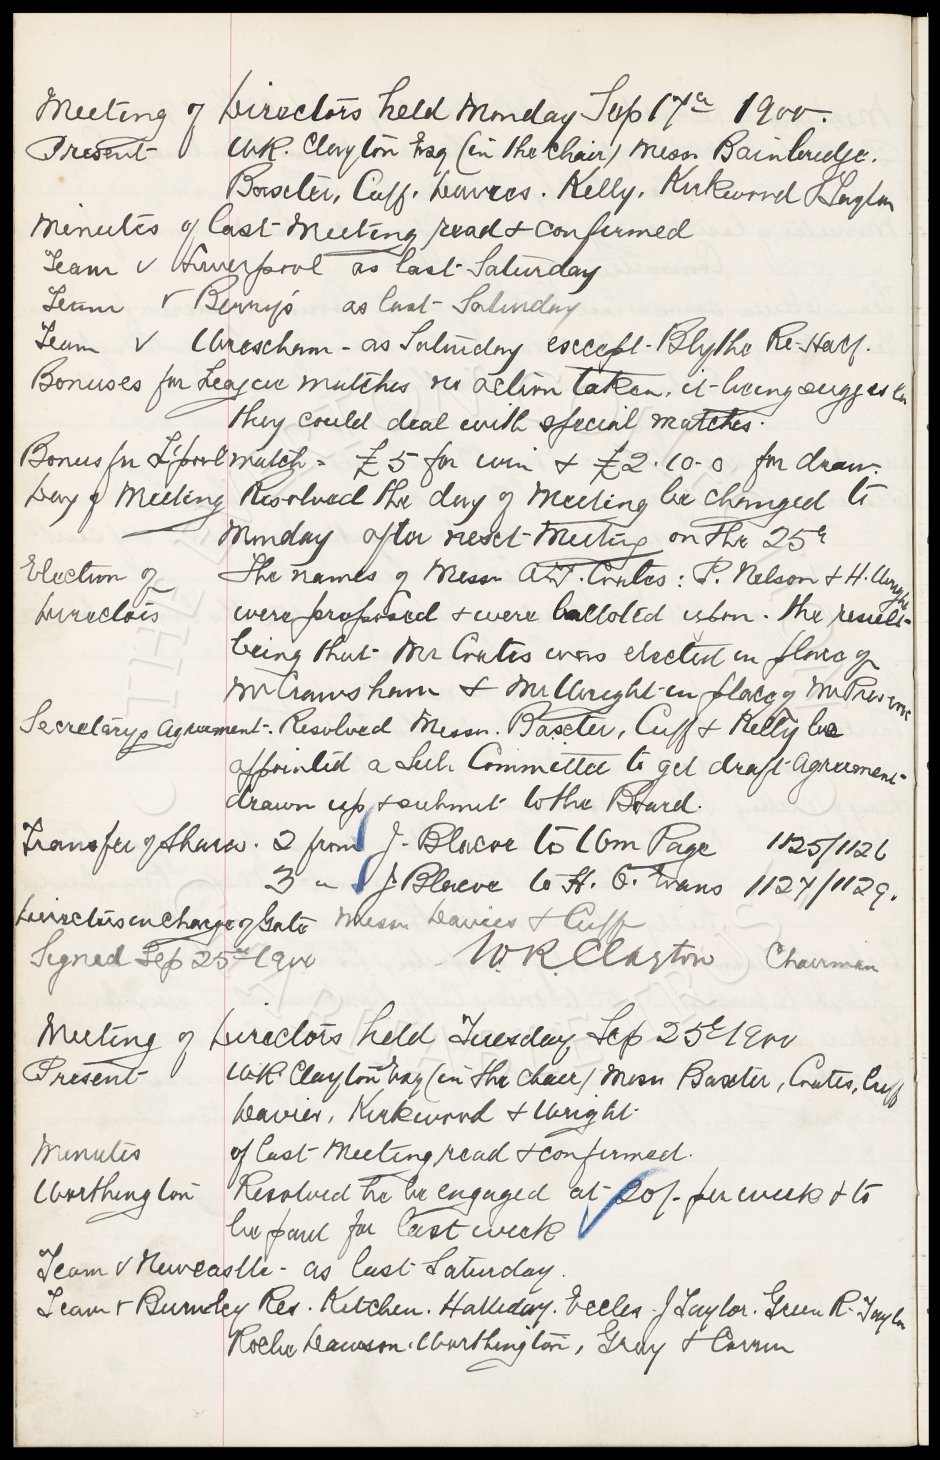 Meeting of Directors held Monday Sep 17th 1900.
Present W.R. Clayton Esq (in the Chair) Messrs Bainbridge.
Baxter, Cuff, Davies. Kelly, Kirkwood &
Minutes of last Meeting read & confirmed
Team v Liverpool as last Saturday
Team v Berry's as last Saturday
Team v Wrexham - as Saturday except Blythe Re-Half.
Bonuses for League matches no action taken, it being
they could deal with special matches.
Bonus for L'pool match - £5 for win & £2.10.0 for draw.
Day of Meeting Resolved the day of Meeting be changed to
Monday after next Meeting on the 25th
Election of The names of Messrs Coates: P. Nelson & H. Wright
Directors were proposed & were balloted upon. the result
being that Mr Coates was elected in place of
Mr Crawshaw & Mr Wright in place of Mr
Secretarys Agreement. Resolved Messrs. Baxter, Cuff & Kelly be
appointed a Sub Committee to get draft Agreement
drawn up & submit to the Board.
Transfer of Shares. 2 from J. Blacoe to Wm Page 1125/1126
3 " J Blacoe to H. O. Evans 1127/1129.
Directors in Charge of Gate Messrs Davies & Cuff
Signed Sep 25th 1900 W.R. Clayton Chairman
Meeting of Directors held Tuesday Sep 25th 1900
Present W.R Clayton Esq (in the chair) Messrs Baxter, Coates, Cuff
Davies, Kirkwood & Wright.
Minutes of last Meeting read & confirmed.
Worthington Resolved he be engaged at 20/- per week & to
be paid for last week
Team v Newcastle - as last Saturday.
Team v Burnley Res. Kitchen. Halliday. Eccles. J Taylor. Green R. Taylor
Roche Dawson. Worthington, Gray & Corrin